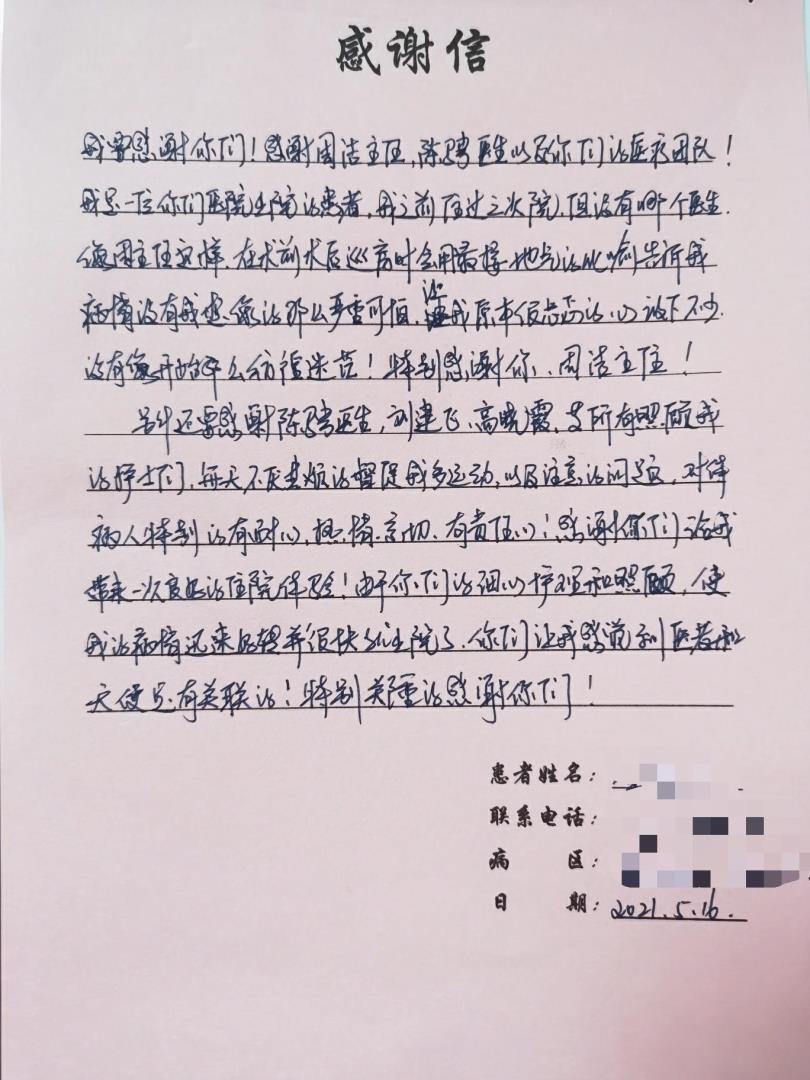 感谢信
我要感谢你们！感谢周洁主任，陈骋医生以及你们的医疗团队！
我是一位你们医院住院的患者，我之前住过三次院，但没有哪个医生
像周主任这样，在术前术后巡房时会用最接地气的比喻告诉我
病情没有我想像的那么严重可怕，让我原本很忐忑的心放下不少，
没有像开始那么彷徨迷茫！特别感谢你、周洁主任！
另外还要感谢陈骋医生，刘建飞、高晓霞，及所有照顾我
的护士们，每天不厌其烦的督促我多运动，以及注意的问题，对待
病人特别的有耐心，热情亲切、有责任心！感谢你们给我
带来一次良好的住院体验！由于你们的细心护理和照顾，使
我的病情迅速好转并很快就出院了，你们让我感觉到医者和
天使是有关联的！特别郑重的感谢你们！
患者姓名：
联系电话：
病 区：
日 期：2021.5.16.